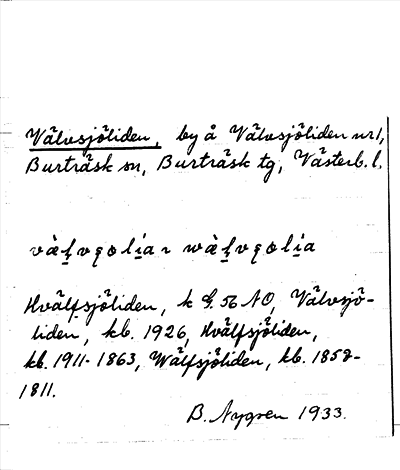 Välvsjöliden, by å Välvsjöliden nr1,
Burträsk sn, Burträsk tg, Västerb. l.
Hvälfsjöliden, k G. 56 NO, Välvsjö-
liden, kb. 1926, Hvälfsjöliden,
kb. 1911-1863, Wälfsjöliden, kb. 1858-
1811.
B. Nygren 1933.